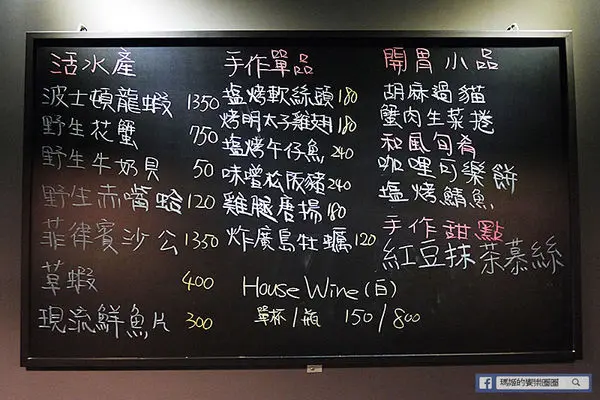 活水產
波士頓龍蝦 1350
野生花蟹 750
野生牛奶貝 50
野生赤嘴蛤 120
菲律賓沙公 1350
草蝦 400
現流鮮魚片 300
手作單品
塩烤軟絲頭 180
烤明太子雞翅 180
塩烤午仔魚 240
味噌松阪豬 240
雞腿唐揚 180
炸廣島牡蠣 120
House Wine (白)
單杯/瓶 150/800
開胃小品
胡麻過貓
蟹肉生菜捲
和風旬肴
咖哩可樂餅
塩烤鯖魚
手作甜點
紅豆抹茶慕絲
瑪姬的饗樂園圈